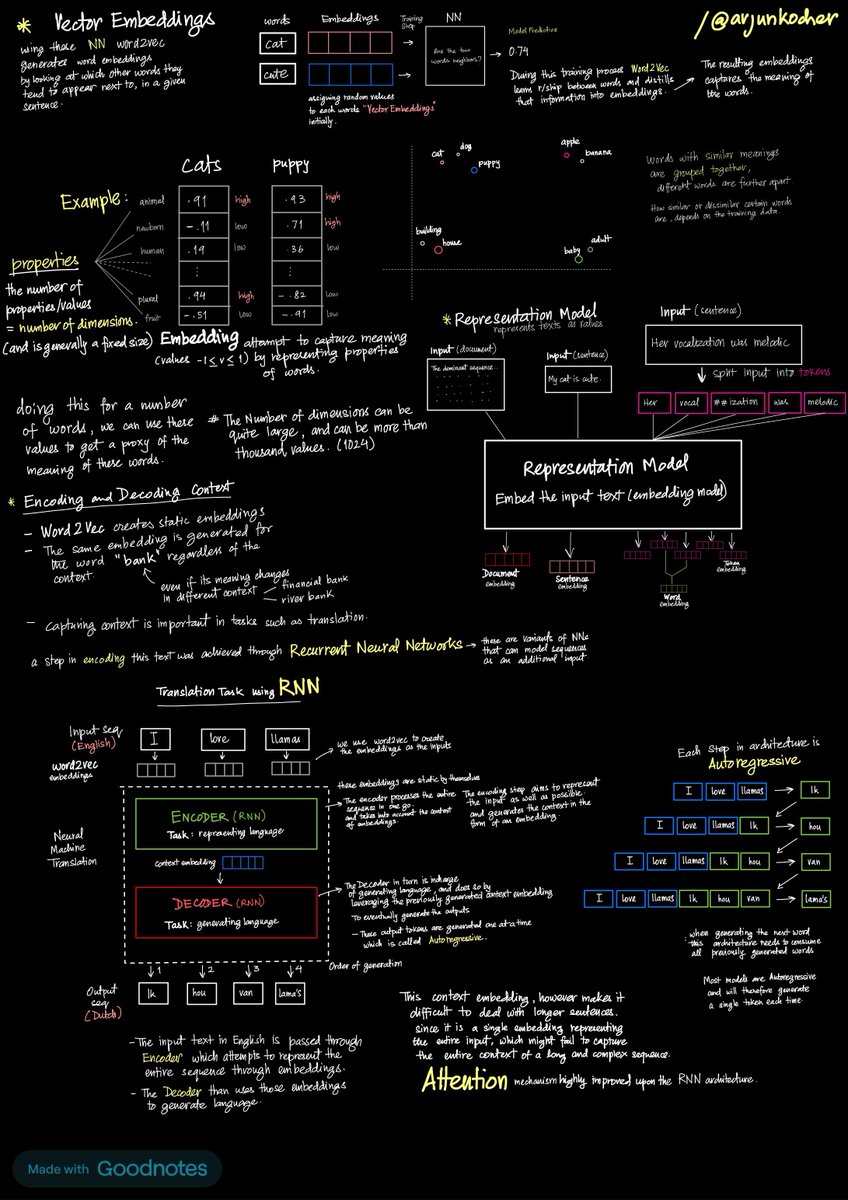 * Vector Embeddings
using these NN word2vec
generates word embeddings
by looking at which other words they
tend to appear next to, in a given
sentence.
words
Embeddings
Training
Step
NN
cat
cute
Are the two
words neighbors?
Model Prediction
0.74
assigning random values
to each words "Vector Embeddings"
initially.
/@arjunkocher
During this training process Word2Vec
learns r/ship between words and distills
that information into embeddings.
The resulting embeddings
captures the meaning of
the words.
Example:
cats
puppy
animal
.91
high
.93
high
newborn
-.11
low
.71
high
human
.19
low
.36
low
plural
.94
high
-.82
low
fruit
-.51
low
-.91
low
properties
the number of
properties/values
= number of dimensions.
(and is generally a fixed size)
Embedding attempt to capture meaning
(values -1≤v≤1) by representing properties
of words.
cat
dog
puppy
apple
banana
building
house
baby
adult
Words with similar meanings
are grouped together,
different words are further apart.
How similar or dissimilar certain words
are, depends on the training data.
doing this for a number
of words, we can use these
values to get a proxy of the
meaning of these words.
# The Number of dimensions can be
quite large, and can be more than
thousand values. (1024)
* Representation Model
represents texts as values
Input (document)
The dominant sequence...
Input (sentence)
My cat is cute.
Input (sentence)
Her vocalization was melodic
split input into tokens
Her
vocal
##ization
was
melodic
Representation Model
Embed the input text (embedding model)
Document
embedding
Sentence
embedding
Word
embedding
Token
embedding
* Encoding and Decoding Context
- Word2Vec creates static embeddings
- The same embedding is generated for
the word "bank" regardless of the
context.
even if its meaning changes
in different context
financial bank
river bank
- Capturing context is important in tasks such as translation.
a step in encoding this text was achieved through Recurrent Neural Networks
these are variants of NNs
that can model sequences
as an additional input
Translation Task using RNN
Input seq
(English)
I
love
llamas
word2vec
embeddings
we use word2vec to create
the embeddings as the inputs
these embeddings are static by themselves
Neural
Machine
Translation
ENCODER (RNN)
Task: representing language
The encoder processes the entire
sequence in one go.
and takes into account the context
of embeddings.
The encoding step aims to represent
the input as well as possible.
and generates the context in the
form of an embedding.
context embedding
DECODER (RNN)
Task: generating language
The Decoder in turn is incharge
of generating language, and does so by
leveraging the previously generated context embedding
To eventually generate the outputs
- These output tokens are generated one at-a-time
which is called Autoregressive.
1
2
3
4
Order of generation
Output
seq
(Dutch)
Ik
hou
van
lama's
- The input text in English is passed through
Encoder which attempts to represent the
entire sequence through embeddings.
- The Decoder than uses those embeddings
to generate language.
Each Step in architecture is
Autoregressive
I
love
llamas
Ik
I
love
llamas
Ik
hou
I
love
llamas
Ik
hou
van
I
love
llamas
Ik
hou
van
lama's
: when generating the next word
this architecture needs to consume
all previously generated words
Most models are Autoregressive
and will therefore generate
a single token each time.
This context embedding, however makes it
difficult to deal with longer sentences.
since it is a single embedding representing
the entire input, which might fail to capture
the entire context of a long and complex sequence.
Attention mechanism highly improved upon the RNN architecture.
Made with Goodnotes